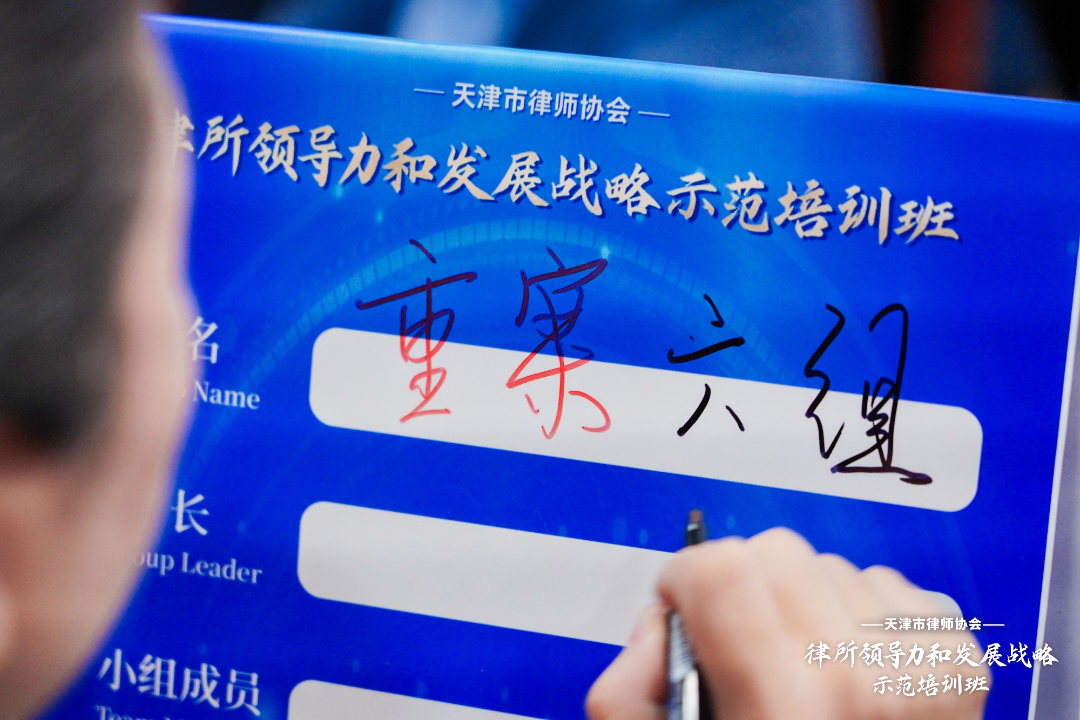 天津市律师协会
律所领导力和发展战略示范培训班
重案六组
名
Name
长
Group Leader
小组成员
天津市律师协会
律所领导力和发展战略
示范培训班